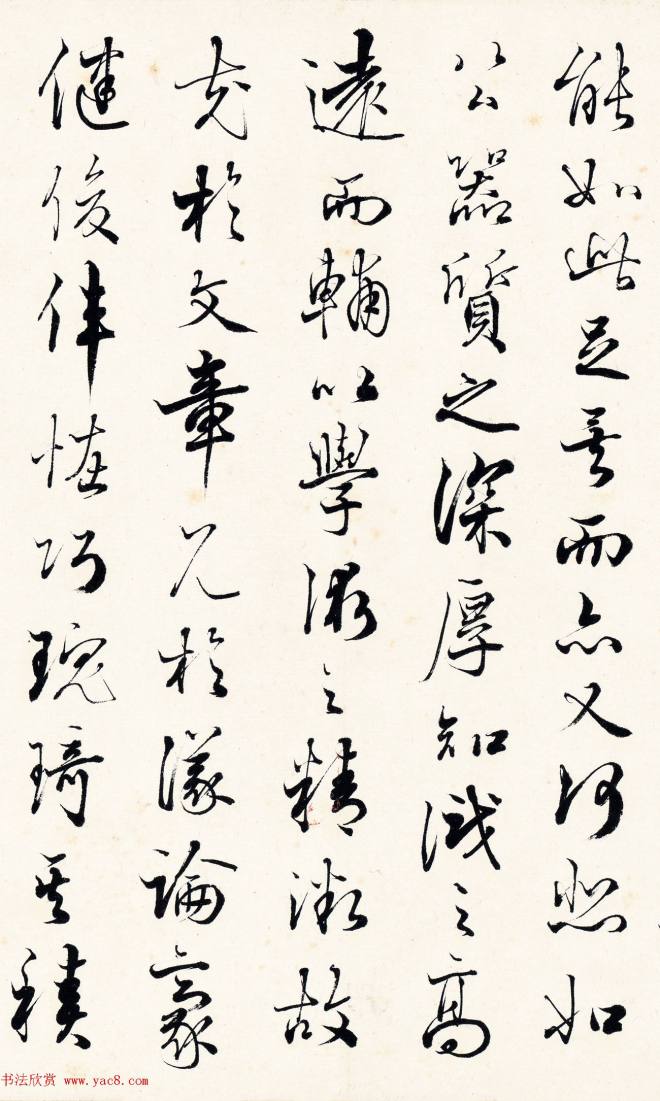 能如此足矣而亦又何悲如
公器質之深厚知識之高
遠而輔以學術之精微故
充於文章見於議論豪
健俊偉怪巧瑰琦其積
书法欣赏 www.yac8.com